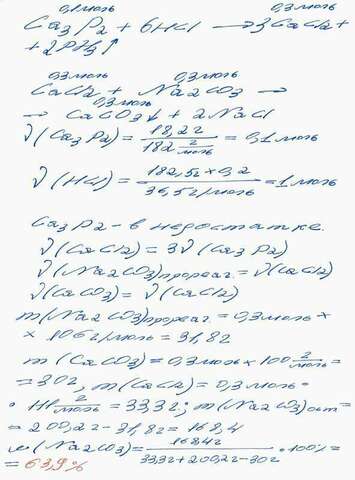 0,1моль 0,3моль
Ca3P2 + 6HCl → 3CaCl2 +
+ 2PH3↑
0,3моль 0,3моль
CaCl2 + Na2CO3 →
0,3моль
→ CaCO3↓ + 2NaCl
ν(Ca3P2) = 18,2г / 182 г/моль = 0,1моль
ν(HCl) = 182,5г × 0,2 / 36,5г/моль = 1моль
Ca3P2 - в недостатке.
ν(CaCl2) = 3ν(Ca3P2)
ν(Na2CO3)прореаг = ν(CaCl2)
ν(CaCO3) = ν(CaCl2)
m(Na2CO3)прореаг = 0,3моль ×
× 106г/моль = 31,8г
m(CaCO3) = 0,3моль × 100 г/моль =
= 30г, m(CaCl2) = 0,3моль ·
· 111 г/моль = 33,3г; m(Na2CO3)ост =
= 200,2г - 31,8г = 168,4
ω(Na2CO3) = 168,4г / 33,3г + 200,2г - 30г · 100% =
= 63,9%